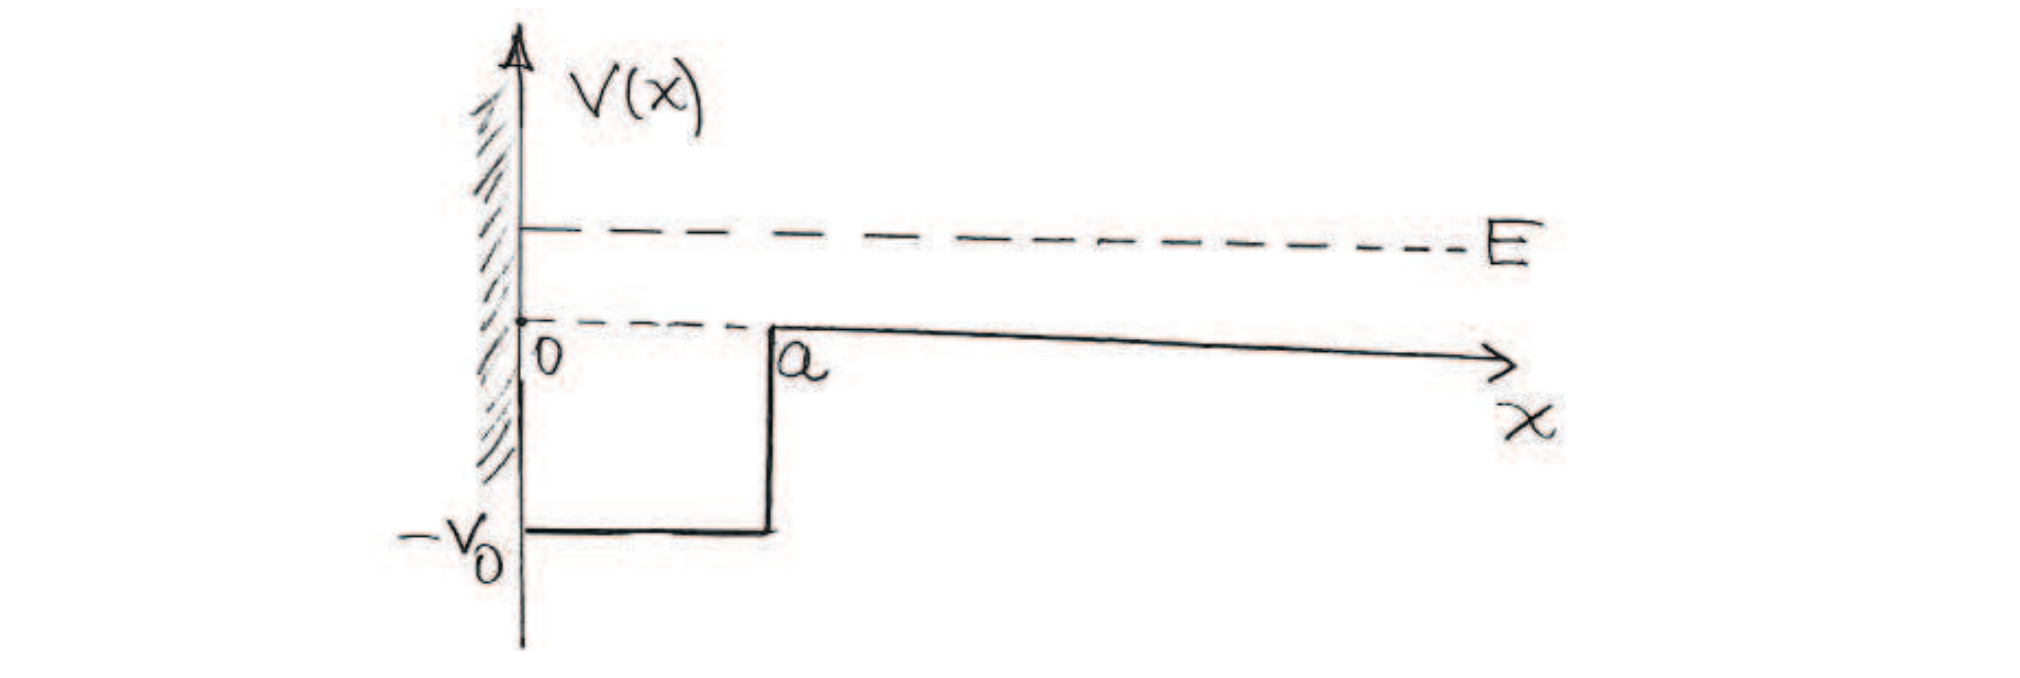 V(x)
E
0
a
x
-V₀